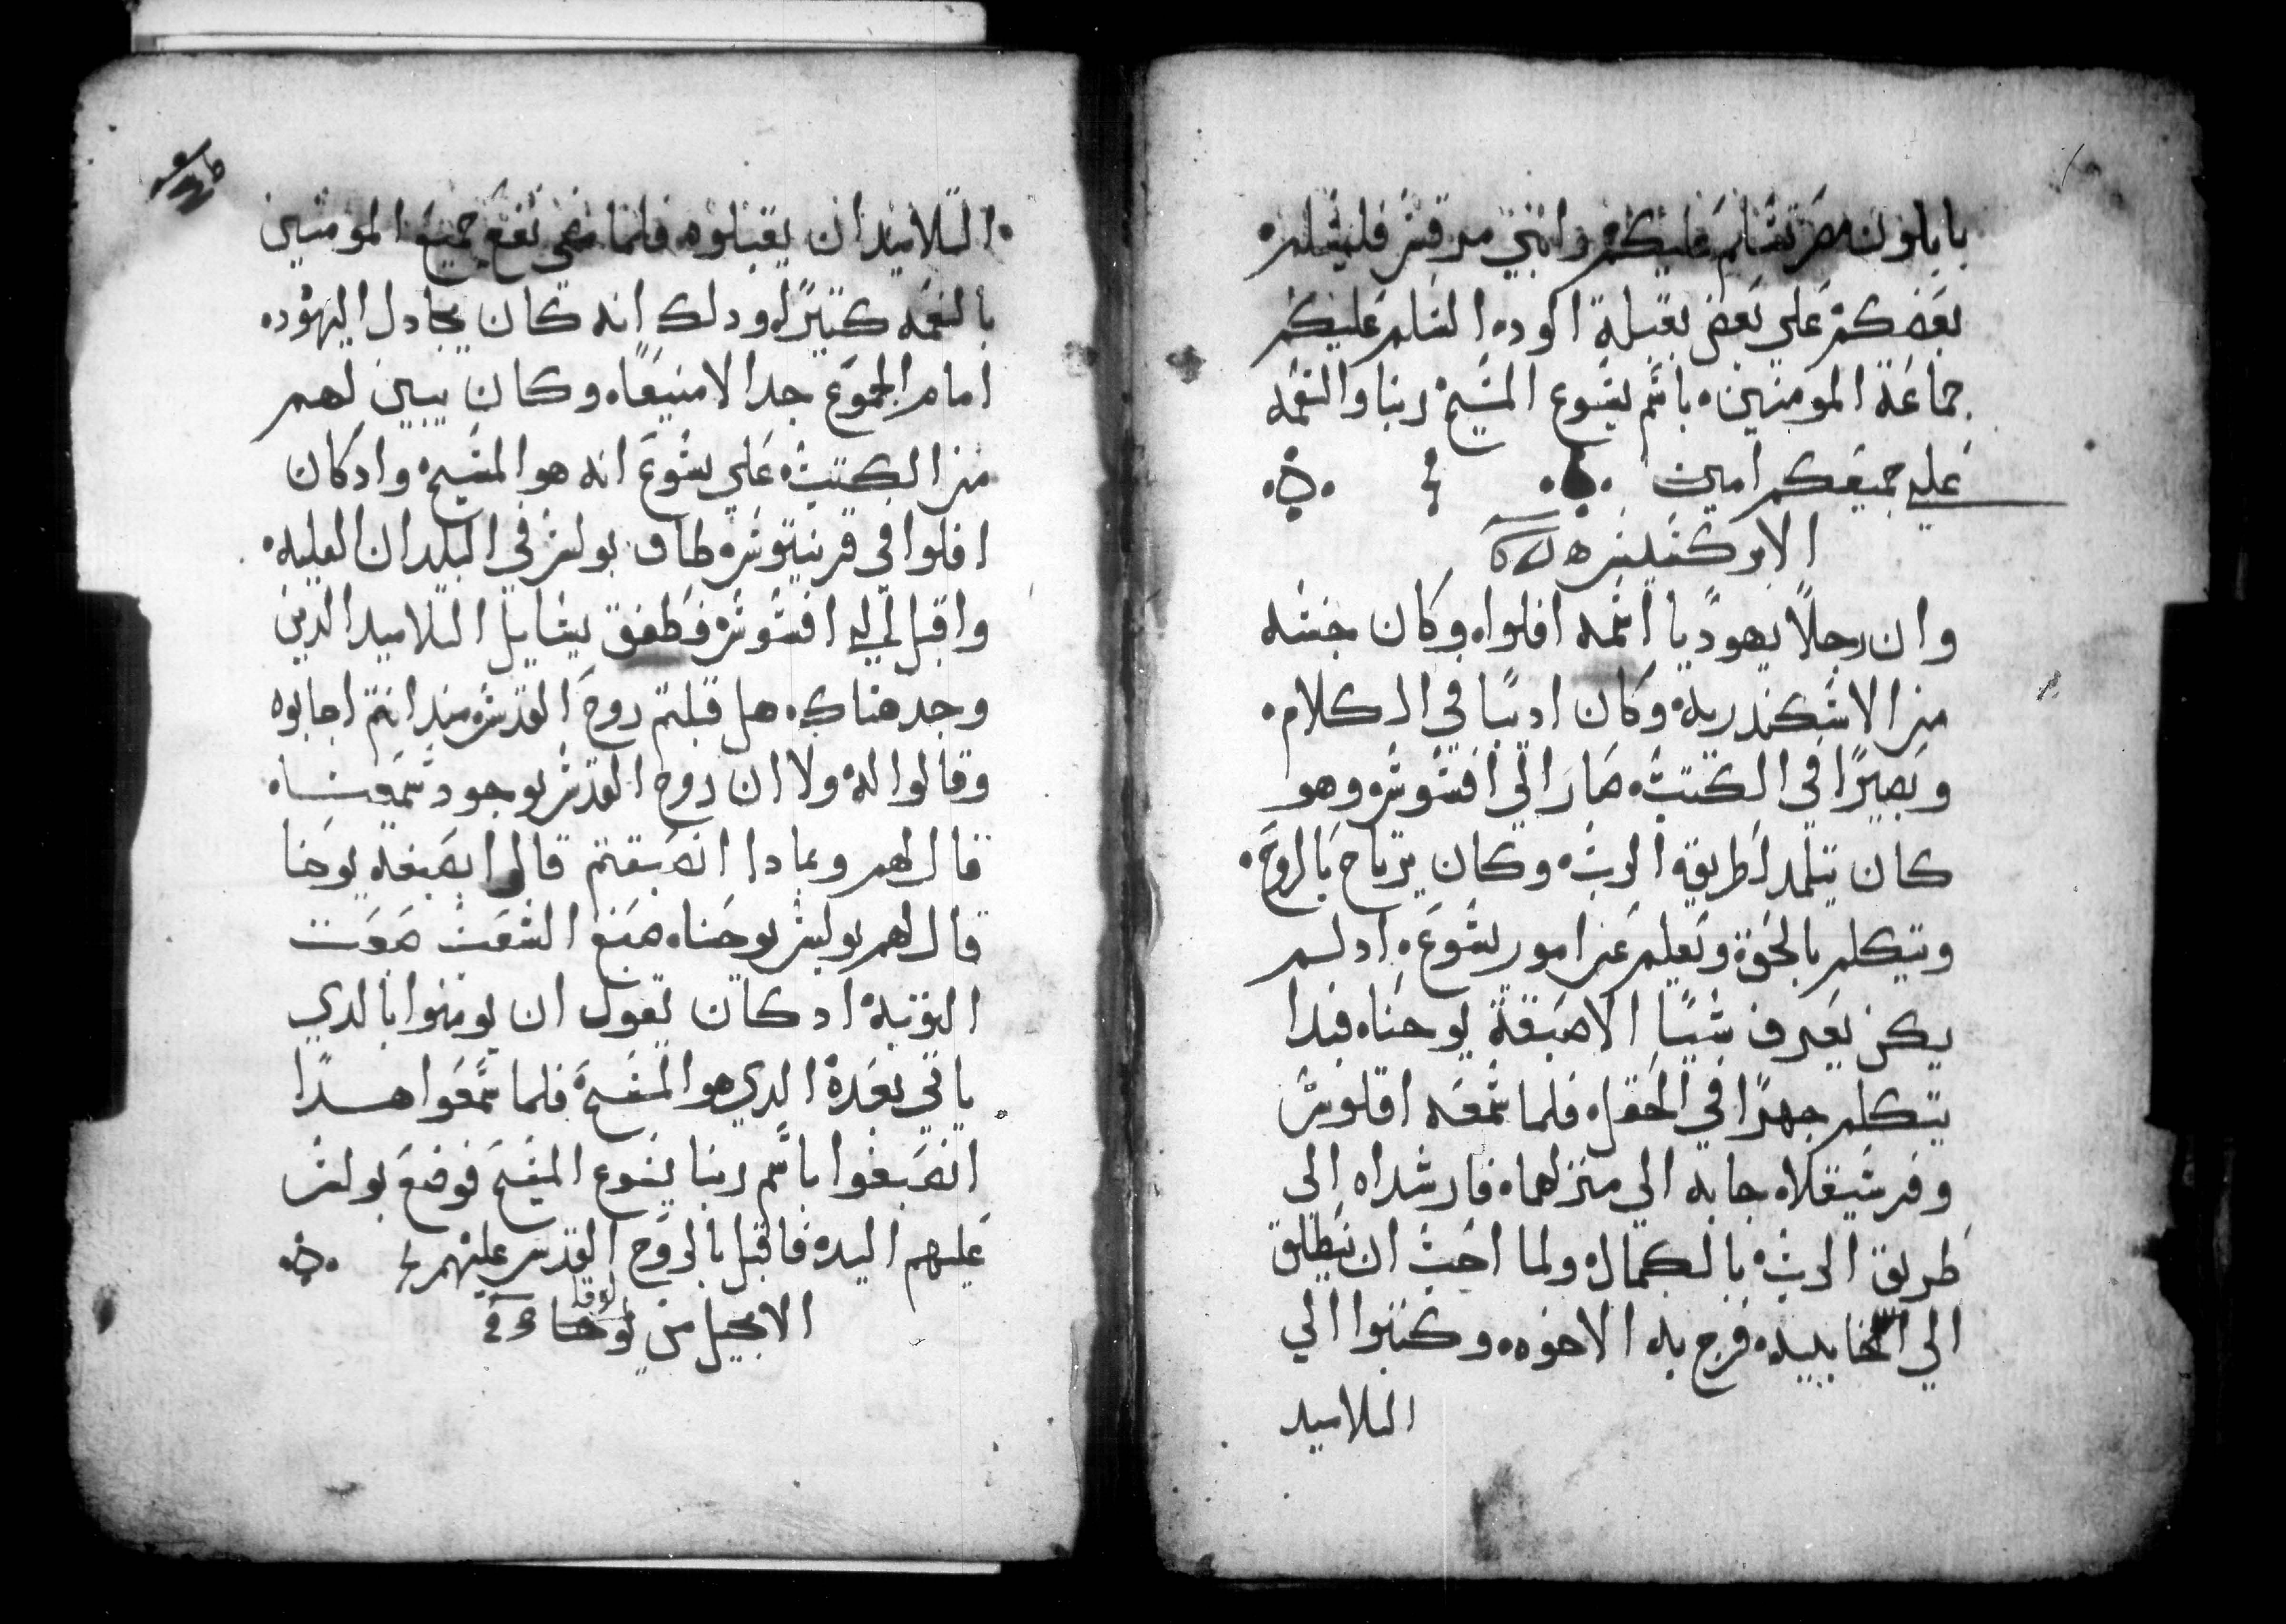 بابلون مصر تسلم عليكم وابني مرقس فليسلم
بعضكم علي بعض بقبلة الوده السلم عليكم
جماعة المومنين باسم يسوع المسيح ربنا والنعمه
علي جميعكم امين
الابركسيس
وان رجلا يهوديا اسمه افلوا وكان جنسه
من الاسكندريه وكان اديبا في الكلام
وبصيرا في الكتب صار الي افسوس وهو
كان يتلمد لطريقه الرب وكان يرتاح بالروح
ويتكلم بالحق وتعليم عن امور يسوع اد لم
يكن يعرف شيا الا صبغة يوحنا فبدا
يتكلم جهرا في الحفل فلما سمعه اقلوس
وفرسيقلا جابه الي منزلهما فارشداه الي
طريق الرب بالكمال ولما احب ان ينطلق
الي فرج به الاخوه وكتبوا الي
التلاميد
التلاميد ان يقبلوه فلما مضي نفع جميع المومنين
بالنعمه كتيرا ودلك انه كان يجادل اليهود
امام الجموع جدالا منيعا وكان يبين لهم
من الكتب علي يسوع انه هو المسيح واد كان
افلوا في قرنيتوس طاف بولس في البلدان العليه
واقبل الي افسوس فطفق يسايل التلاميد الدين
وجد هناك هل قبلتم روح القدس مند انتم اجابوه
وقالوا له ولا ان روح القدس بوجود سمعنا
قال لهم وبمادا انصبغتم قالوا بصبغة يوحنا
قال لهم بولس يوحنا صبغ الشعب صوت
التوبة اد كان يقول ان يومنوا بالدي
ياتي بعده الدي هو المسيح فلما سمعوا هدا
انصبغوا باسم ربنا يسوع المسيح فوضع بولس
عليهم اليد فاقبل بالروح القدس عليهم
الانجيل من لوقا